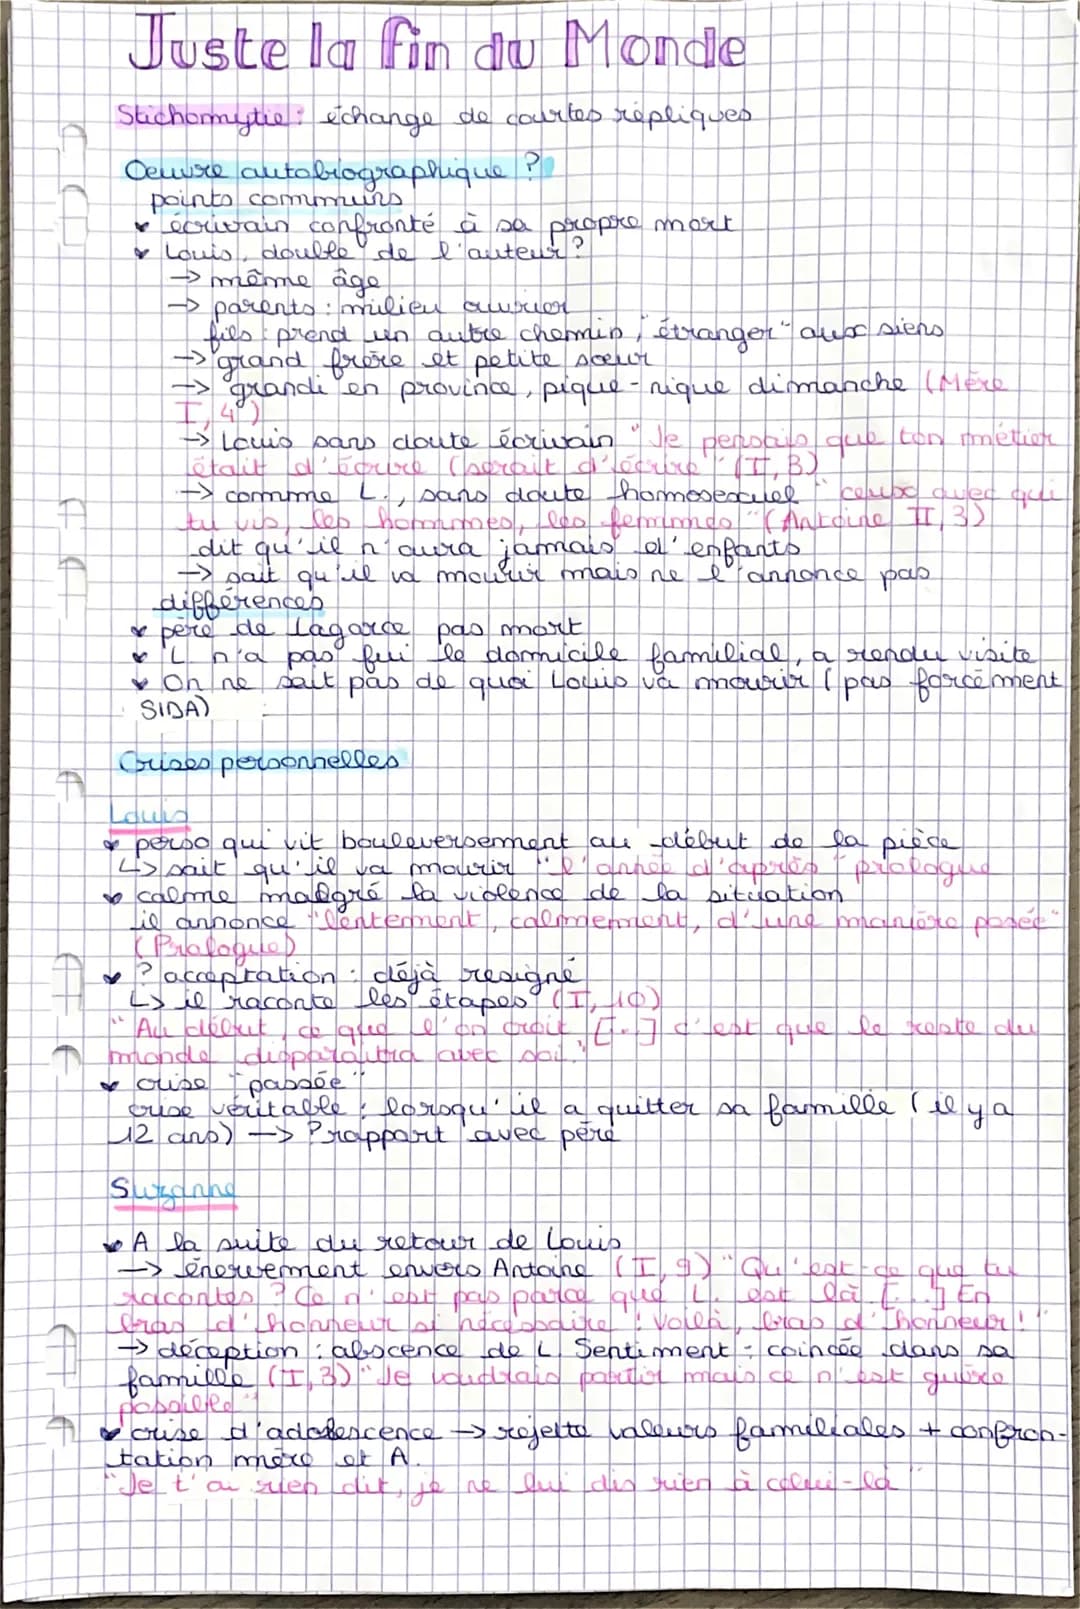 Juste la fin du Monde
Stichomytie : échange de courtes répliques
Oeuvre autobiographique ?
points communs
écrivain confronté à sa propre mort
Louis, double de l'auteur ?
→ même âge
→ parents : milieu ouvrier
fils : prend un autre chemin, "étranger" aux siens
→ grand frère et petite sœur
→ grandi en province, pique-nique dimanche (Mère
I, 4)
→ Louis sans doute écrivain "Je pensais que ton métier
était d'écrire (serait d'écrire" (I, 3)
→ comme L., sans doute homosexuel "ceux avec qui
tu vis, les hommes, les femmes" (Antoine II, 3)
dit qu'il n'aura jamais d'enfants
→ sait qu'il va mourir mais ne l'annonce pas
différences
père de Lagarce pas mort
L n'a pas fui le domicile familial, a rendu visite
On ne sait pas de quoi Louis va mourir (pas forcément
SIDA)
Crises personnelles
Louis
perso qui vit bouleversement au début de la pièce
↳ sait qu'il va mourir "l'année d'après" prologue
calme malgré la violence de la situation
il annonce "lentement, calmement, d'une manière posée"
(Prologue)
? acceptation : déjà resigné
↳ il raconte les étapes (I, 10)
"Au début, ce que l'on croit [...] c'est que le reste du
monde disparaîtra avec soi."
crise "passée"
crise véritable : lorsqu'il a quitter sa famille (il y a
12 ans) → ? rapport avec père
Suzanne
A la suite du retour de Louis
→ énervement envers Antoine (I, 9) "Qu'est-ce que tu
racontes ? Ce n'est pas parce que L. est là [...] En
bras d'honneur si nécessaire ! voilà, bras d'honneur !"
→ déception : abscence de L. Sentiment : coincée dans sa
famille (I, 3) "Je voudrais partir mais ce n'est guère
possible"
crise d'adolescence → rejette valeurs familiales + confron-
tation mère et A.
"Je t'ai rien dit, je ne lui dis rien à celui-là"